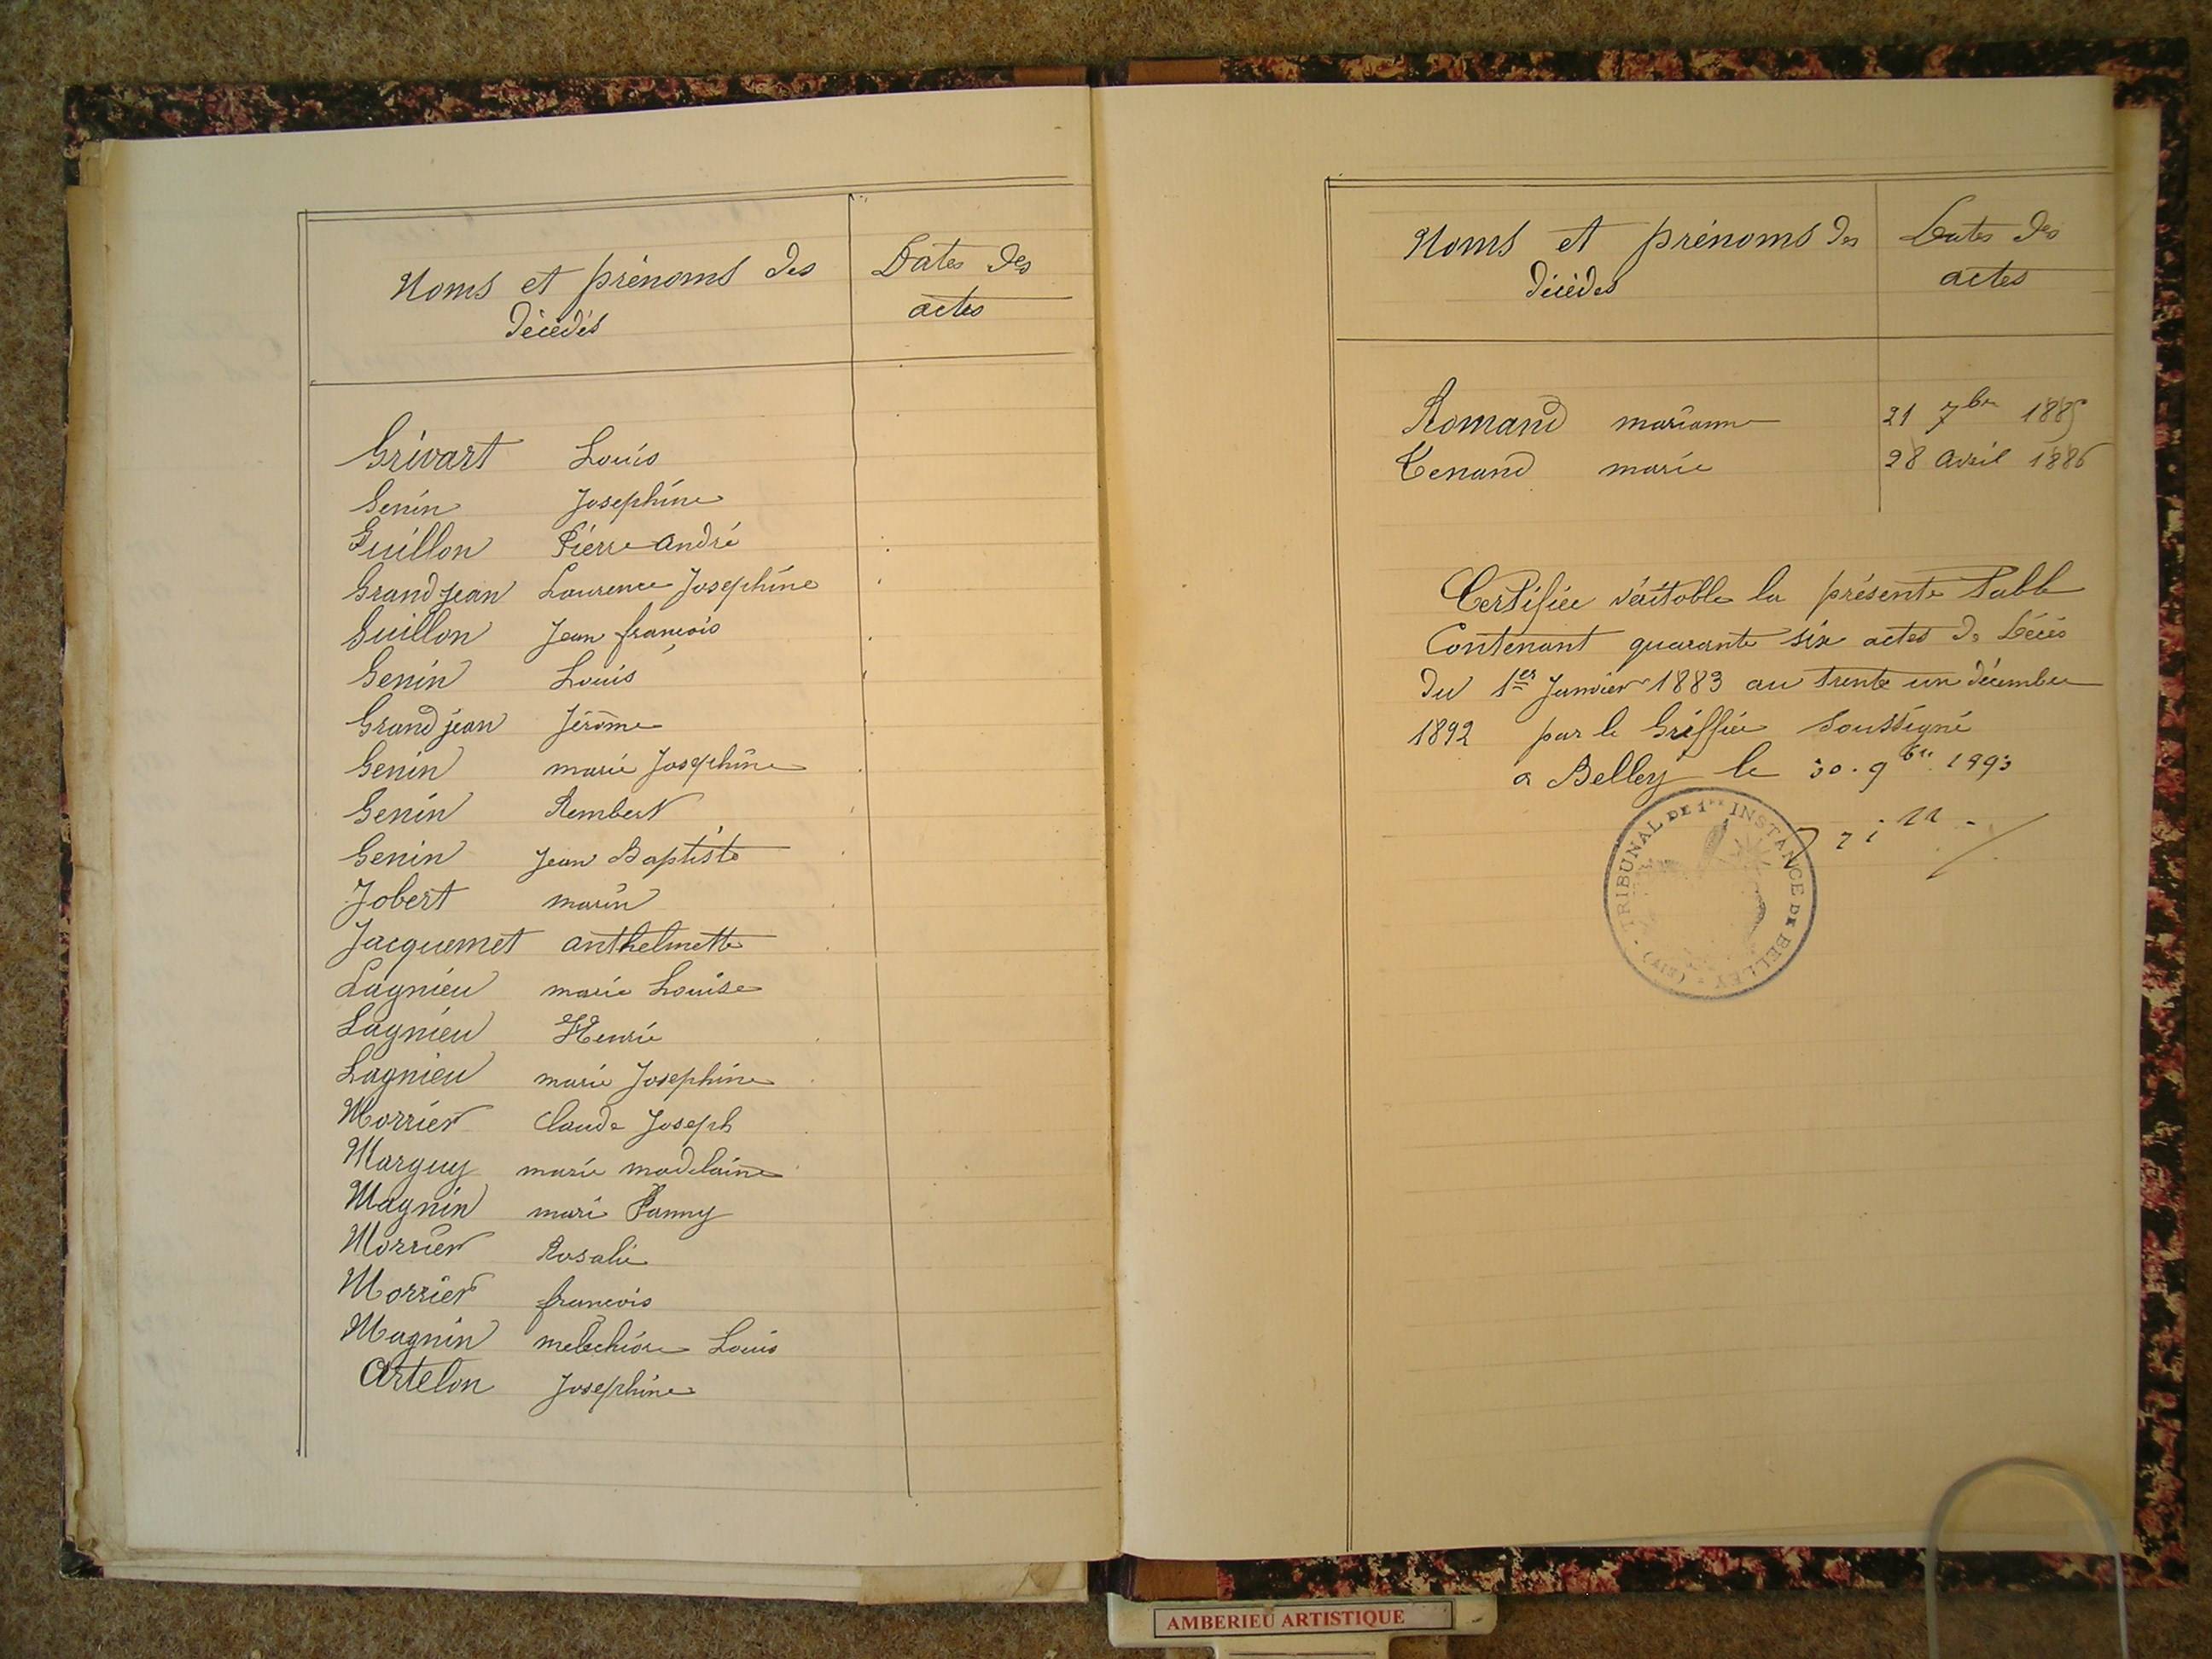 Noms et prénoms des
décédés
Dates des
actes
Grivart Louis
Genin Josephine
Guillon Pierre andré
Grandjean Laurence Josephine
Guillon Jean françois
Genin Louis
Grandjean Jérôme
Genin marie Josephine
Genin Rembert
Genin Jean Baptiste
Jobert marin
Jacquemet anthelmette
Lagnieu marie Louise
Lagnieu Henrie
Lagnieu marie Josephine
Morrier Claude Joseph
Marguy marie madelaine
Magnin mari Fanny
Morrier Rosalie
Morrier françois
Magnin melechiore Louis
Artelon Josephine
Noms et prénoms des
décédés
Dates des
actes
Romand marianne 21 7bre 1885
Tenand marie 28 avril 1886
Certifiée véritable la présente Table
Contenant quarante six actes de Décès
du 1er Janvier 1883 au trente un décembre
1892 par le Greffier Soussigné
a Belley le 30. 9bre 1893
TRIBUNAL DE 1re INSTANCE DE BELLEY (AIN)
AMBERIEU ARTISTIQUE